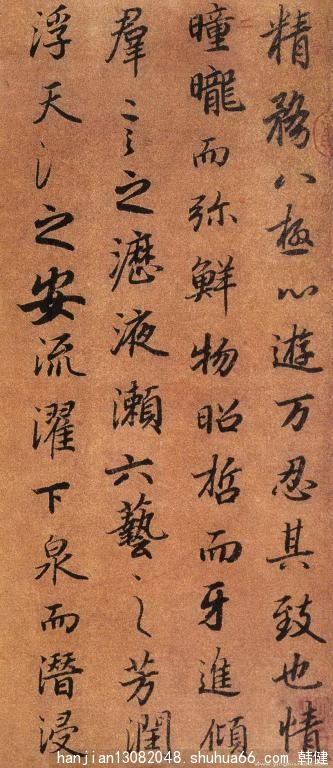 精務八極心遊万忍其致也情
曈曨而弥鮮物昭晢而牙進傾
羣言之瀝液瀬六藝之芳潤
浮天氵之安流濯下泉而潛浸
hanjian13082048.shuhua66.com 韩健